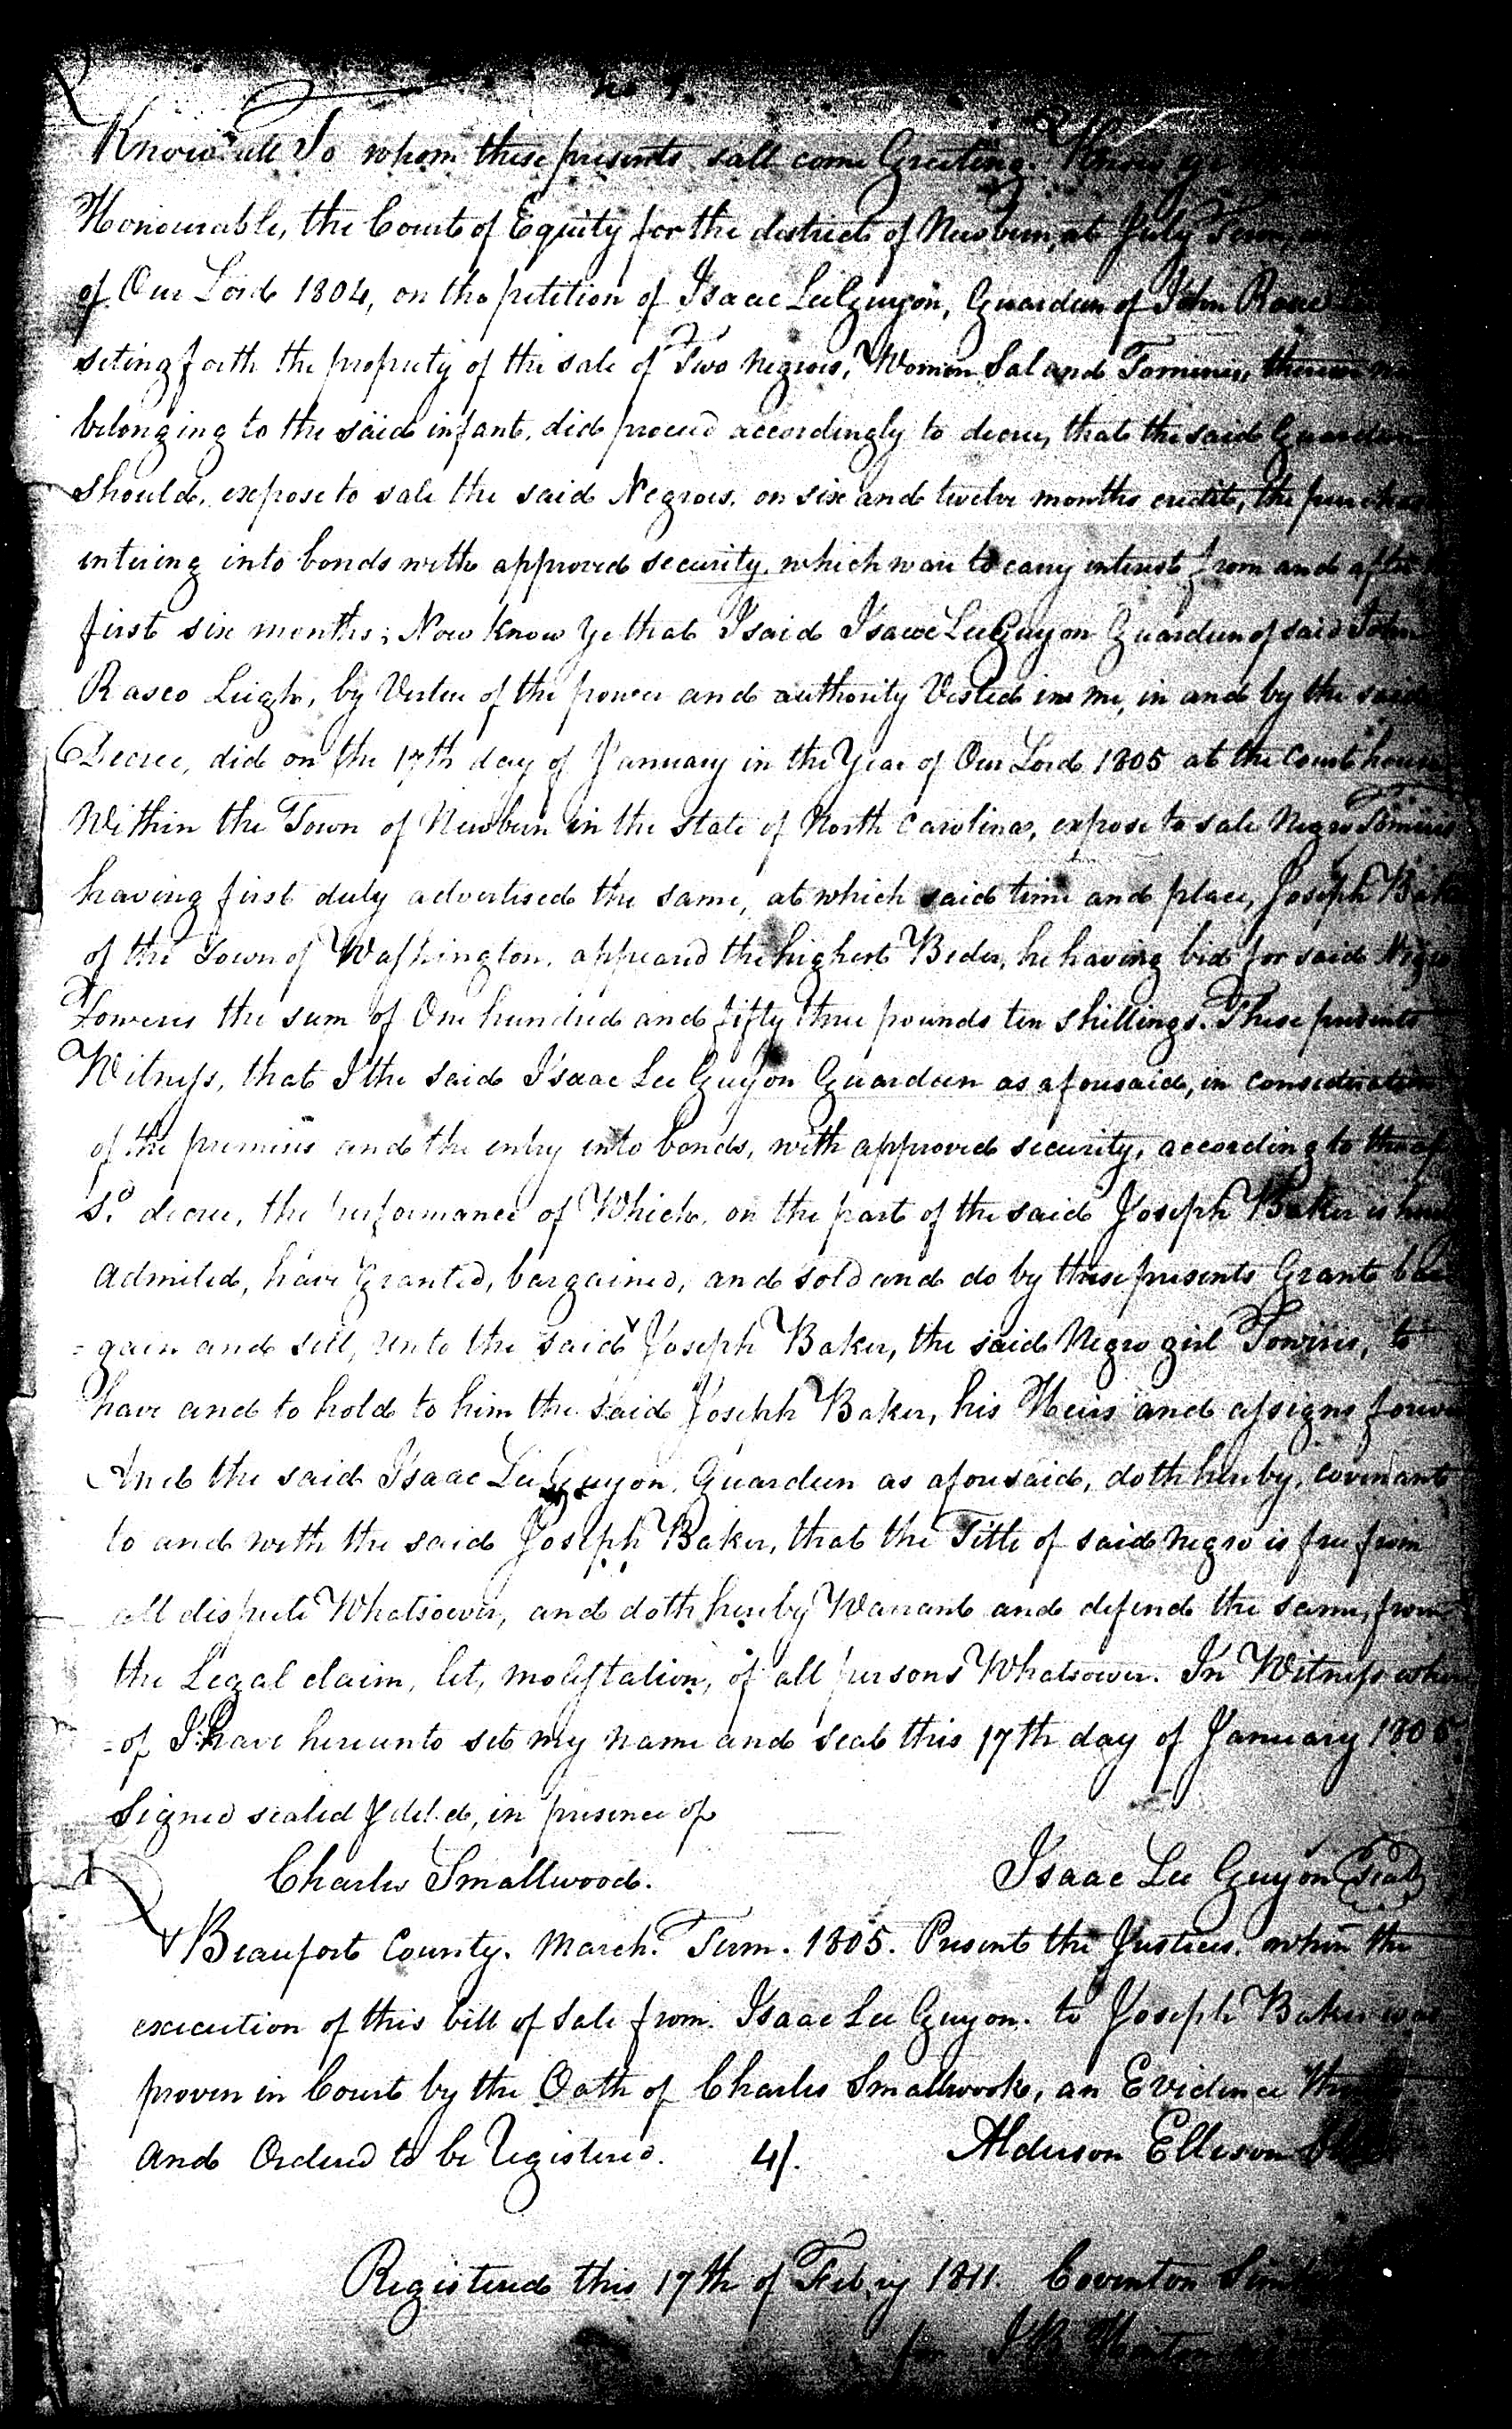 No 1.
Know all To whom these presents sall come Greeting.
Honourable, the Court of Equity for the district of Newbern, at July Term
of Our Lord 1804, on the petition of Isaac LeeGuyon, Guardeen of John Rasco
seting forth the propriety of the sale of Two negroes, Women Sal and
belonging to the said infant, did proceed accordingly to decree, that the said Guardeen
should, expose to sale the said Negroes, on six and twelve months credit, the
entering into bonds with approved security, which ware to carry interest from and after
first six months; Now Know Ye that I said Isaac LeeGuyon Guardeen of said John
Rasco Leigh, by Vertue of the power and authority Vested in me, in and by the said
Decree, did on the 17th day of January in the Year of Our Lord 1805 at the Court house
Within the Town of Newbern in the State of North Carolina, expose to sale Negro
having first duly advertised the same, at which said time and place, Joseph Baker
of the Town of Washington, appeard the highest Beder, he having bid for said Negro
Toweris the sum of One hundred and fifty three pounds ten shillings. These presents
Witness, that I the said Isaac Lee Guyon Guardeen as aforesaid, in consideration
of the premises and the entry into bonds, with approved security, according to the
sd. decree, the performance of Which, on the part of the said Joseph Baker is
admited, have Granted, bargained, and sold and do by these presents Grant bar
=gain and sell, unto the said Joseph Baker, the said Negro girl Toweris, to
have and to hold to him the said Joseph Baker, his Heirs and assigns forever
And the said Isaac Lee Guyon, Guardeen as aforesaid, doth hereby, covenant
to and with the said Joseph Baker, that the Title of said negro is free from
all dispute Whatsoever, and doth hereby Warrant and defend the same, from
the Legal claim, let, molestation, of all persons Whatsoever. In Witness where
=of I have hereunto set my name and seal this 17th day of January 1805
Signed sealed & deld, in presence of
Charles Smallwood. Isaac Lee Guyon (seal)
Beaufort County. March. Term. 1805. Present the Justices. when the
execution of this bill of Sale from. Isaac Lee Guyon. to Joseph Baker was
proven in Court by the Oath of Charles Smallwook, an Evidence
and Ordered to be Registered. 4/. Alderson Ellison
Registered this 17th of Febry 1811. Coventon
for